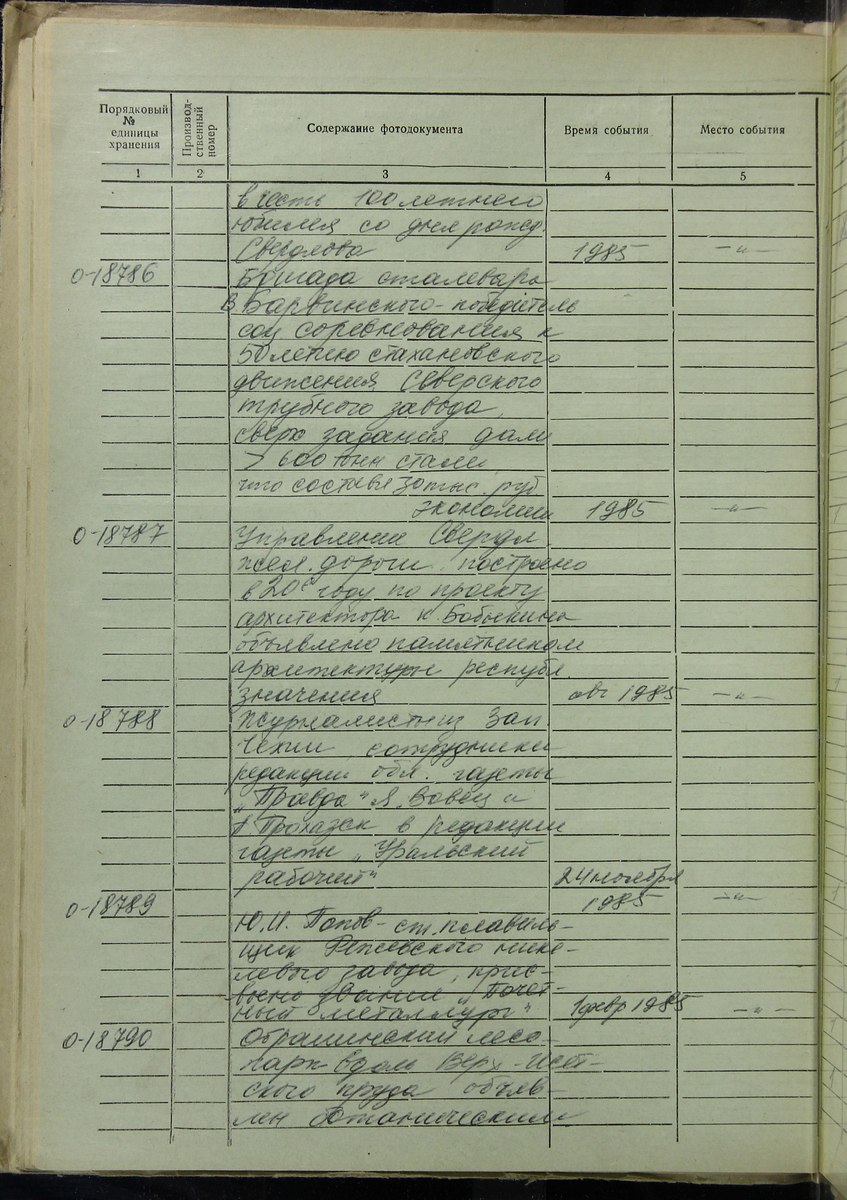 Порядковый № единицы хранения
Производственный номер
Содержание фотодокумента
Время события
Место события
1 2 3 4 5
в честь 100 летнего
юбилея со дня рожд.
Свердлова 1985 —„—
0-18786 Бригада сталевара
В Барвинского - победитель
соц соревнования к
50 летию стахановского
движения Северского
трубного завода
сверх задания дали
> 600 тнн стали
что состав 30 тыс. руб
экономии 1985 —„—
0-18787 Управление Свердл.
жел. дороги построено
в 20е году по проекту
архитектора К. Бабыкина
объявлено памятником
архитектуры республ.
значения авг 1985 —„—
0-18788 Журналисты из Зап.
Чехии сотрудники
редакции обл. газеты
„Правда" Я. Вовец и
П Прохазек в редакции
газеты „Уральский
рабочий" 24 ноября
0-18789 1985 —„—
Ю.И. Попов - ст. плавиль-
щик Режевского нике-
левого завода, прис-
воено звания „Почет-
ный металлург" 1 февр 1985 —„—
0-18790 лесо-
парк вдоль Верх-Исет-
ского пруда объяв-
лен ботаническим